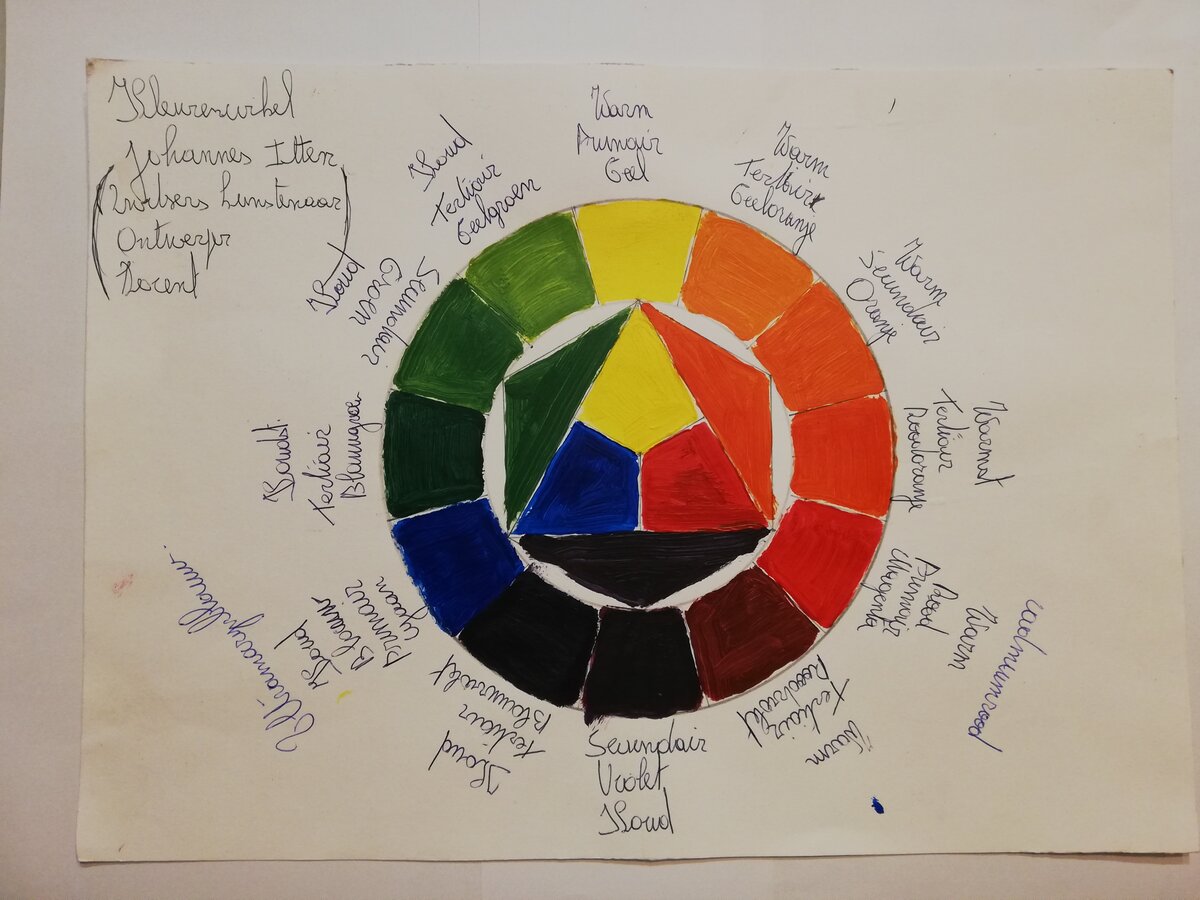 Kleurencirkel
Johannes Itten
(Zwitsers kunstenaar
Ontwerper
Docent)
Warm
Primair
Geel
Warm
Tertiair
Geeloranje
Warm
Secundair
Oranje
Warmst
Tertiair
Roodoranje
cadmiumrood
Warm
Rood
Primair
Magenta
Warm
Tertiair
Roodviolet
Secundair
Violet
Koud
Blauwviolet
Tertiair
Koud
Ultramarijnblauw
Koud
Blauw
Primair
Cyaan
Koudst
Tertiair
Blauwgroen
Koud
Groen
Secundair
Koud
Tertiair
Geelgroen